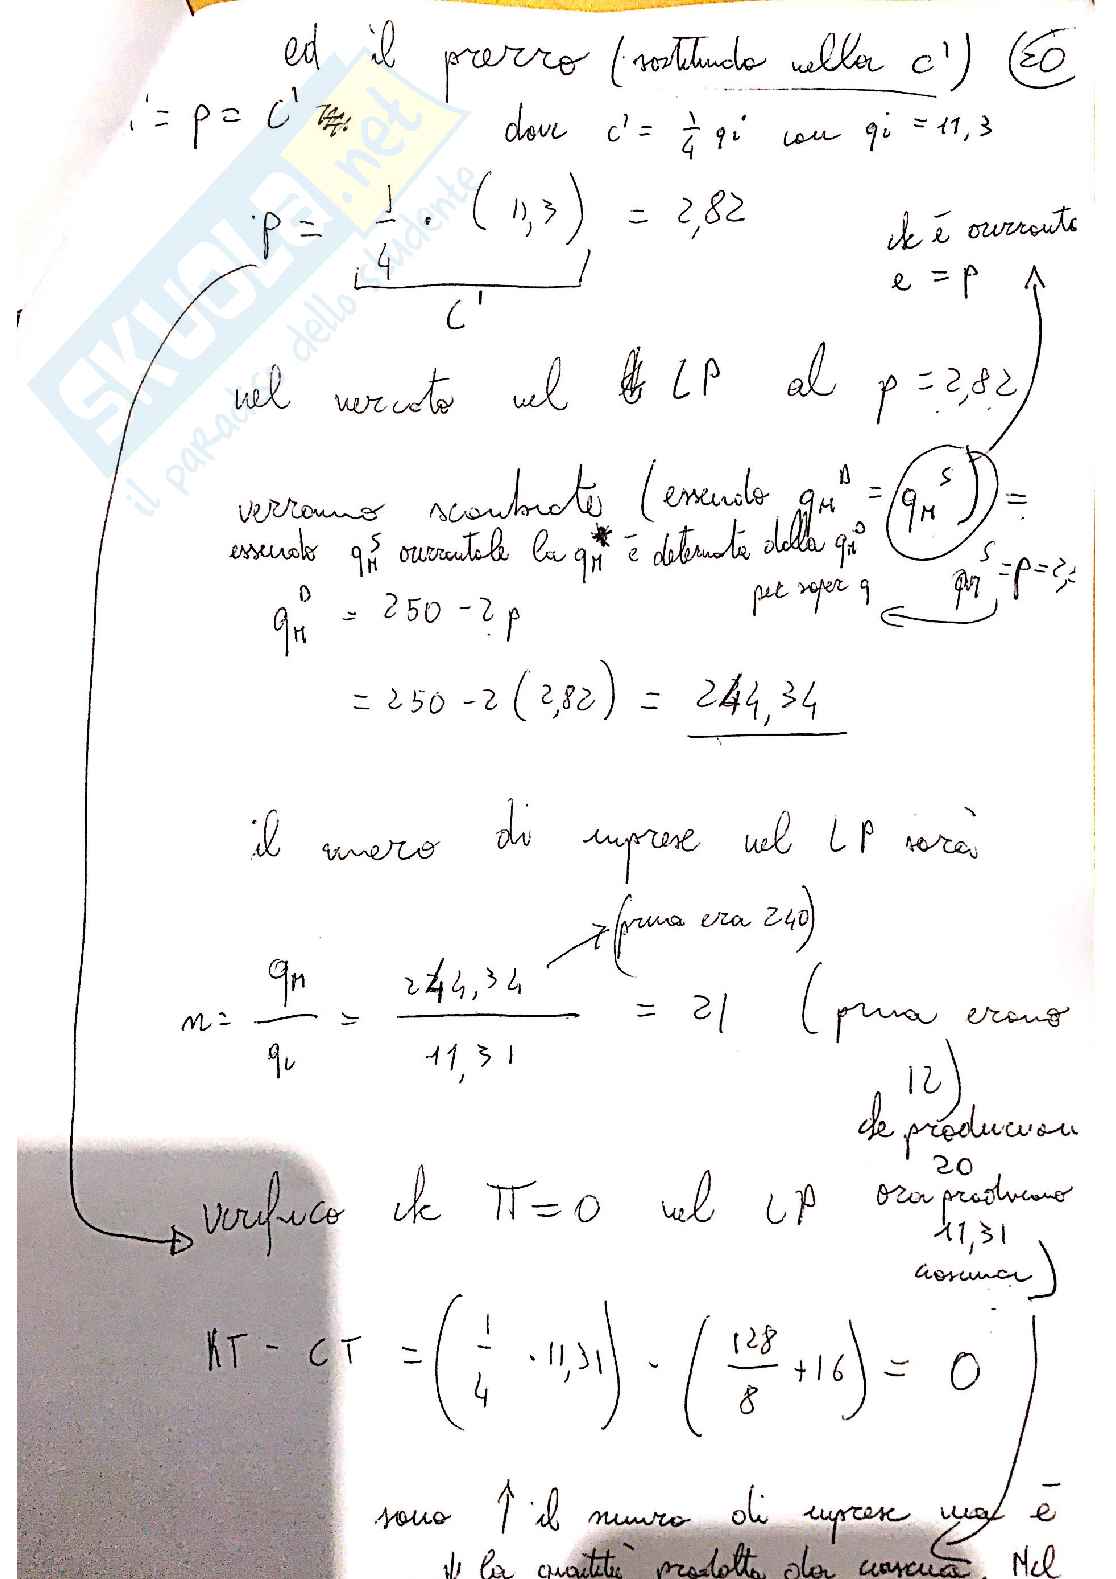 ed il prezzo (sostituendo nella c') 20
' = p = c'
dove c' = 1/4 qi con qi = 11,3
p = 1/4 · (11,3) = 2,82
c'
che è orizzonta
e = p
nel mercato nel LP al p = 2,82
verranno scambiate (essendo qM^D = qM^S) =
essendo qM^S orizzontale la qM* è determata dalla qM^D
per saper q
qM^S = p = 2,
qM^D = 250 - 2p
= 250 - 2(2,82) = 244,34
il numero di imprese nel LP sarà
(prima era 240)
n = qM/qi = 244,34/11,31 = 21 (prima erano
12)
che producevan
20
ora producono
11,31
ciascuna)
verifico che π = 0 nel LP
RT - CT = (1/4 · 11,31) - (128/8 + 16) = 0
sono ↑ il numero di imprese ma è
↓ la quantità prodotta da ciascuna. Nel
SKUOLA.net
il paradiso dello studente